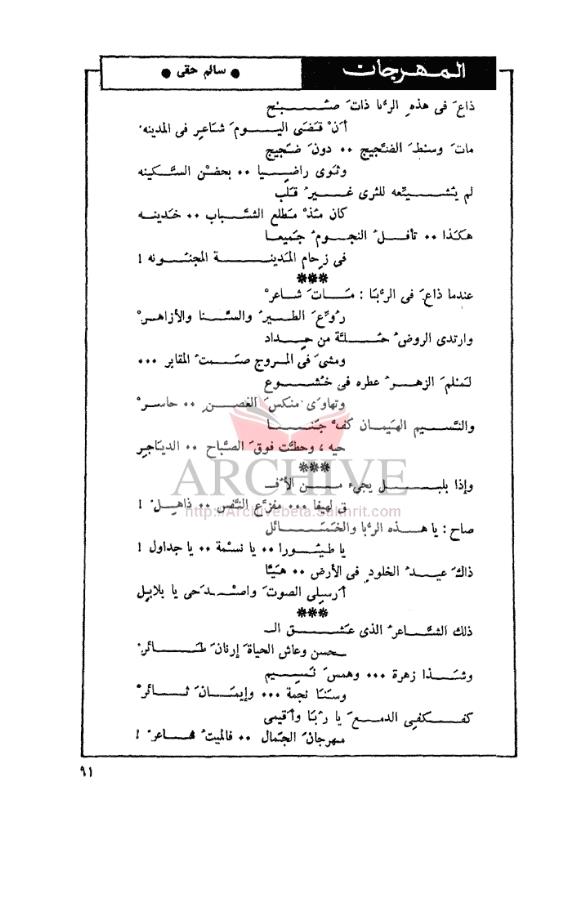 المهرجان
• سالم حقى •
ذاعَ فى هذهِ الرُّبا ذاتَ صُبْحٍ
أَنْ قَضَى اليومَ شاعرٌ فى المدينهْ
ماتَ وسْطَ الضَّجيجِ ٠٠ دونَ ضَجيجٍ
وثَوى راضيًا ٠٠ بحضْنِ السَّكينه
لم يُشَيِّعْه للثرى غيرُ قَلْبٍ
كان مُنذُ مَطلعِ الشَّبابِ ٠٠ خَدينه
هكذا ٠٠ تأفلُ النجومُ جَميعا
فى زحام المَدينة المجنُونه !
***
عندما ذاعَ فى الرُّبا : مَاتَ شاعرْ
رُوِّعَ الطيرُ والسَّنا والأزاهرْ
وارتدى الروضُ حُلَّةً من حِدادٍ
ومشَى فى المروج صَمتُ المقابر ٠٠٠
لَمْلَمَ الزهرُ عطره فى خُشُوعٍ
وتهاوَى منكسَ الغصنِ ٠٠ حاسرْ
والنَّسيم الهَيمان كفَّ جَنَا
حيه ، وحطَّت فوقَ الصَّباح ٠٠ الدياجِر
***
وإذا بلبلٌ يجيءُ مِنَ الأفـ
ق لهيفا ٠٠٠ مفزَّع النَّفس ٠٠ ذاهِلْ !
صاح : يا هذه الرُّبا والخَمَائل
يا طيُورا ٠٠ يا نسْمة ٠٠ يا جداول !
ذاكَ عيدُ الخلودِ فى الأرض ٠٠ هَيَّا
أرسلِى الصوتَ واصْدَحى يا بلابل
***
ذلك الشَّاعرُ الذى عَشِقَ الـ
ـحسن وعاش الحياةَ إرنانَ طَائرْ
وشَذا زهرة ٠٠٠ وهمسَ نَسيمٍ
وسَنَا نجمة ٠٠٠ وإيمَانَ ثَائرْ
كفكفى الدمعَ يا رُبَا وأقيمى
مهرجانَ الجَمال ٠٠ فالميتُ شاعرْ !
٩١
ARCHIVE
http://Archivebeta.Sakhrit.com